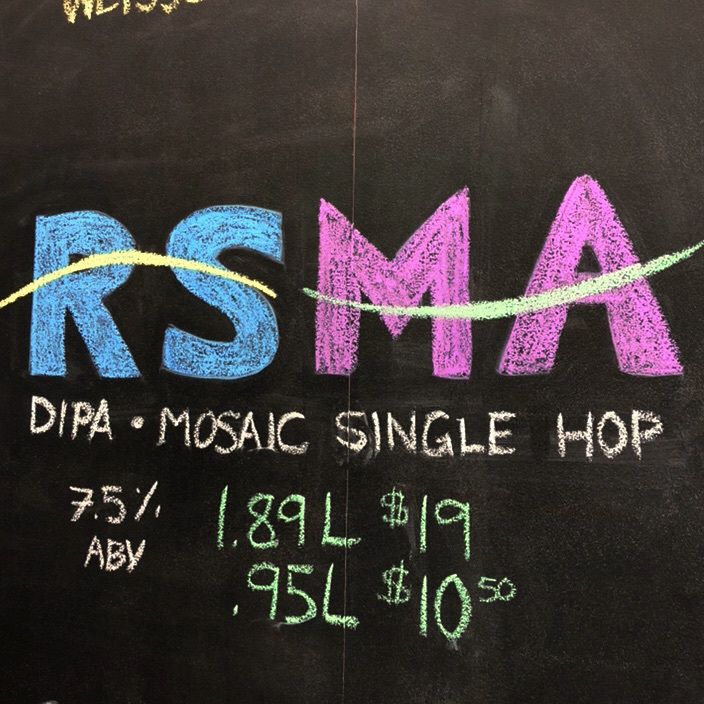 RSMA
DIPA • MOSAIC SINGLE HOP
7.5% ABV
1.89L $19
.95L $10 50